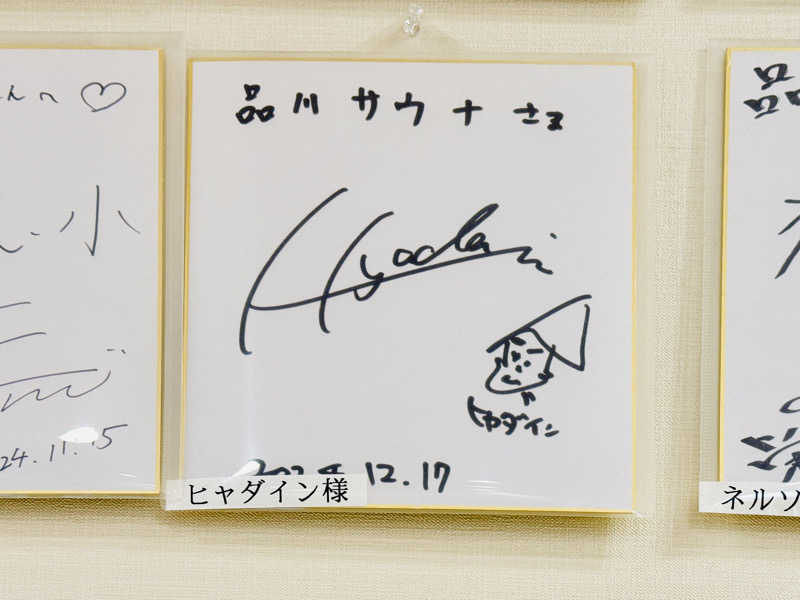 んへ ♡
小
24.11.15
品川サウナさま
Hyadain
ヒャダイン
2024.12.17
ヒャダイン様
品
ネルソ